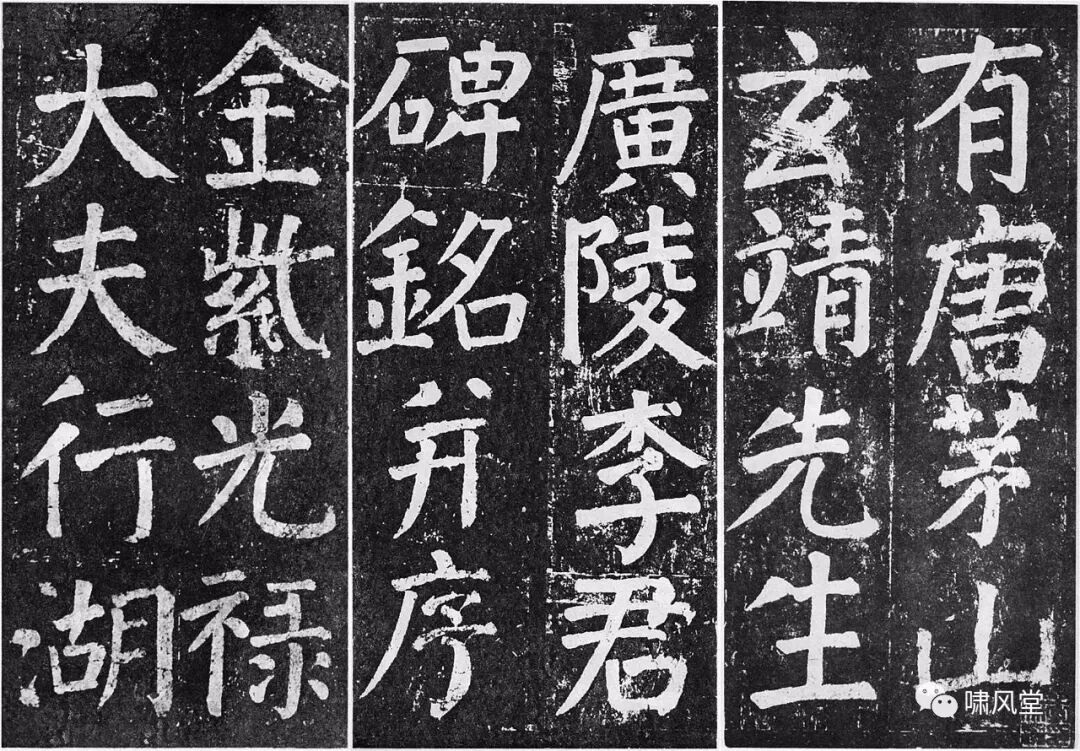 有唐茅山
玄靖先生
廣陵李君
碑銘并序
金紫光禄
大夫行湖
啸风堂